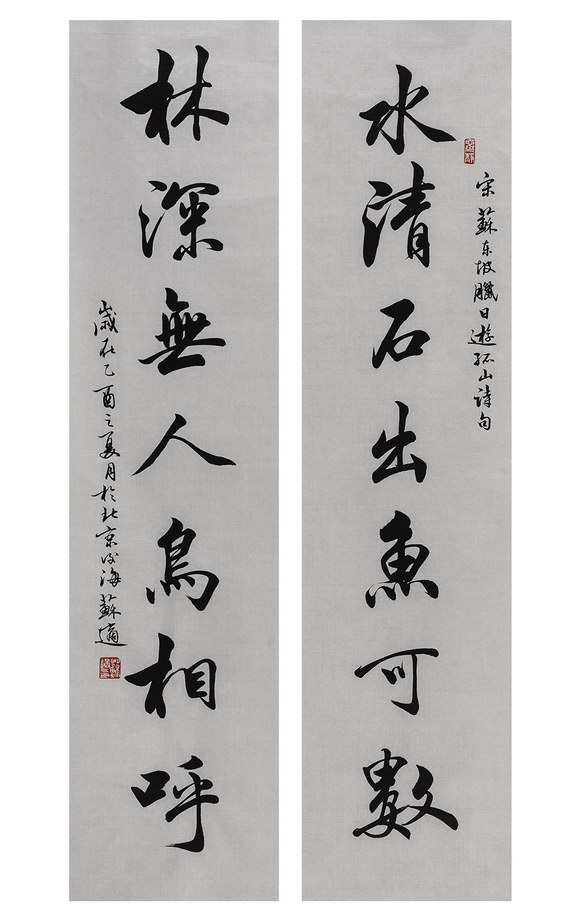 宋蘇东坡臘日遊孤山诗句
水清石出魚可數
林深無人鳥相呼
歲在乙酉之夏月於北京後海蘇適